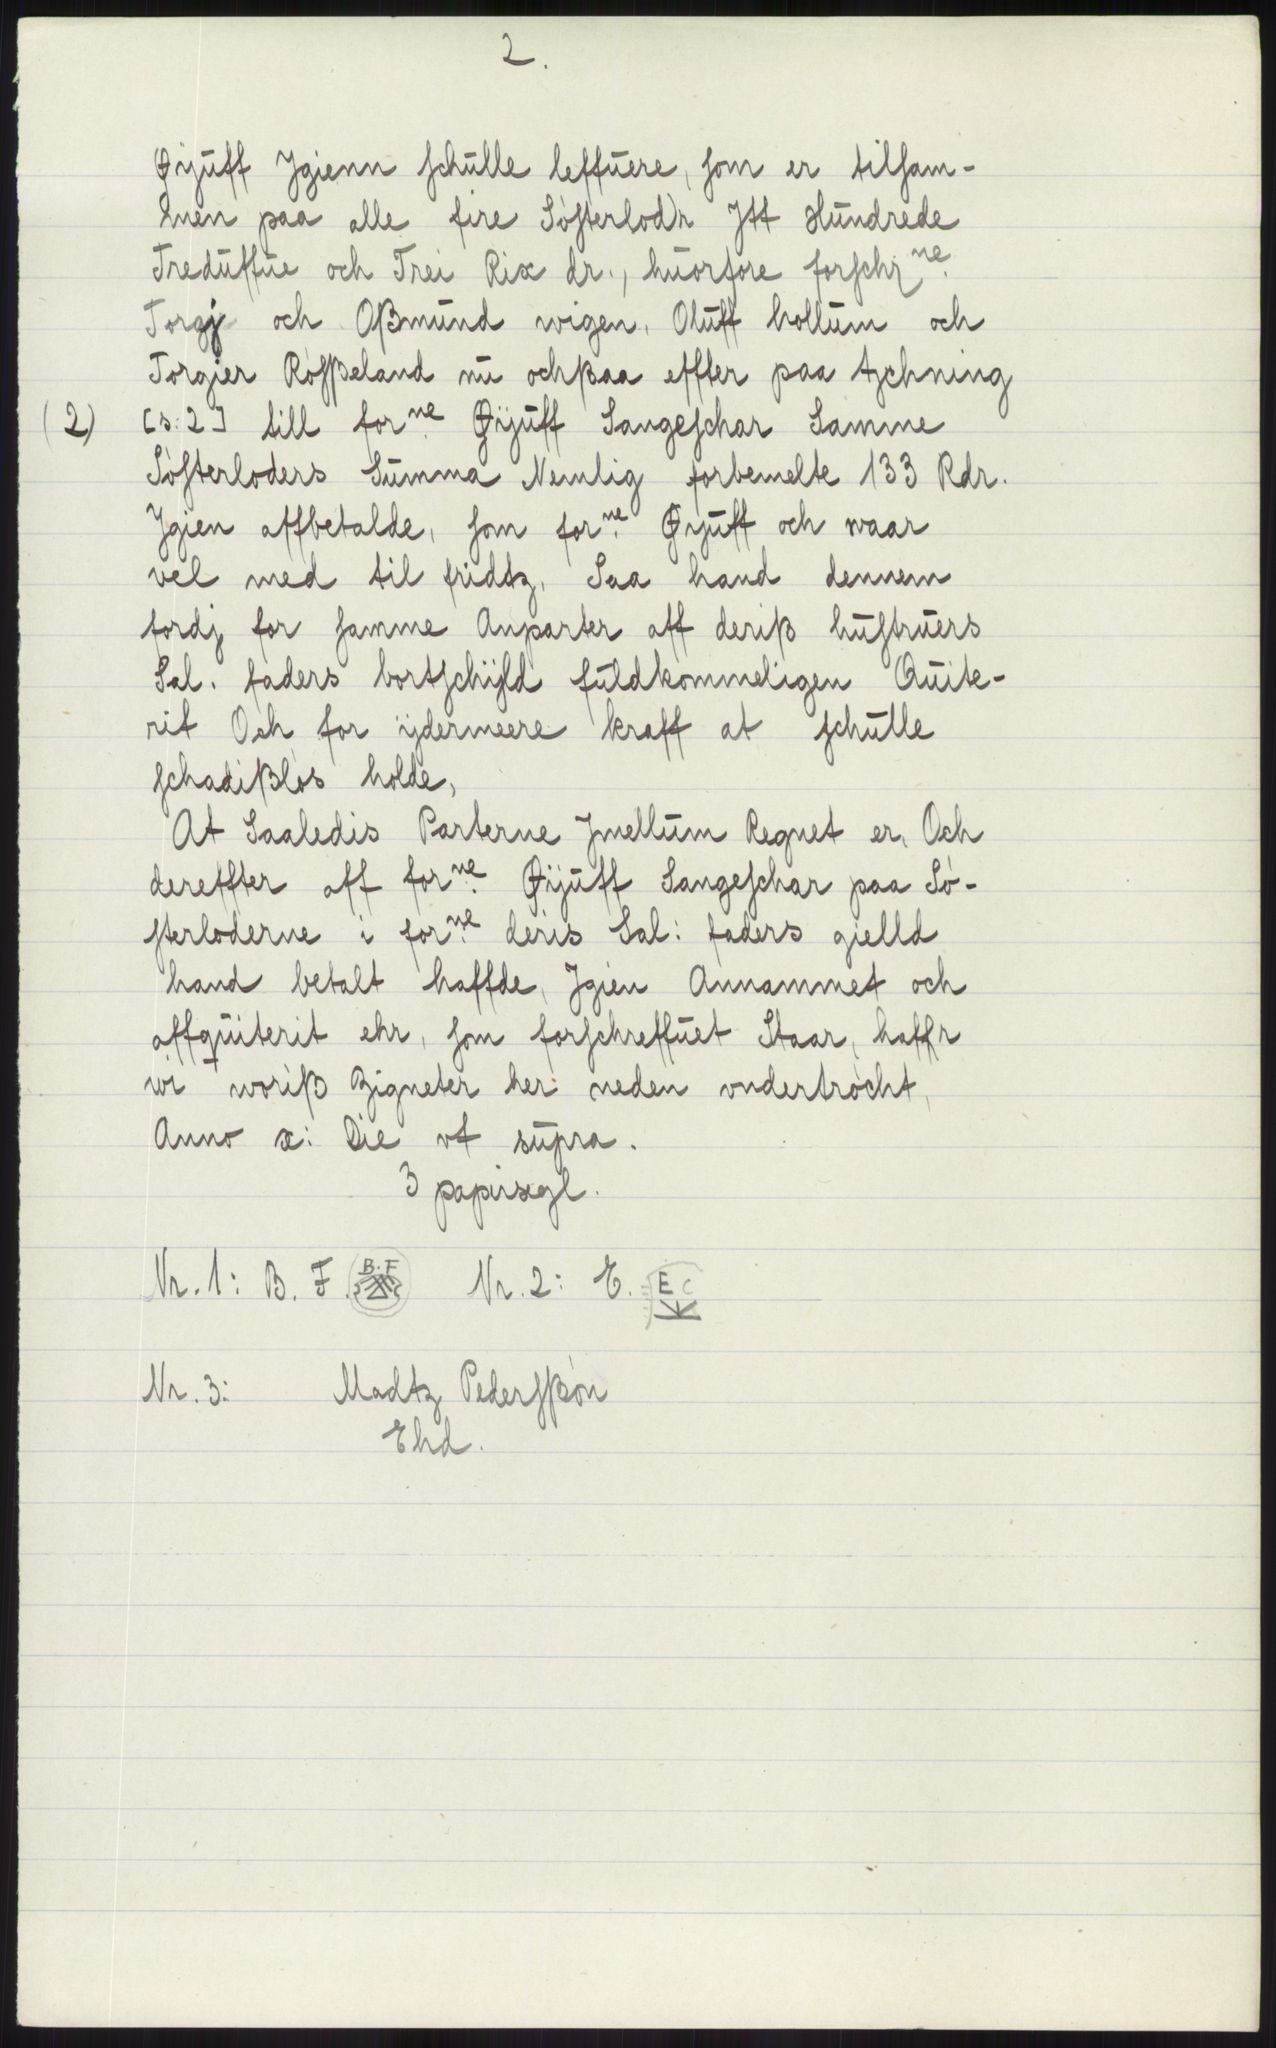 2.
Øÿuff Jgienn schulle leffuere, som er tilsam-
men paa alle fire Søsterlodr Jtt Hundrede
Treduffue och Trei Rix dr., huorfore forschr ne.
Torgj och Oßmund wigen, Oluff hollum och
Torgier Røsßeland nu ochßaa effter paa tzchning
(2) [s. 2] till for ne. Øÿuff Sangeschar Samme
Søsterloders Summa Nemlig forbemelte 133 Rdr.
Jgien affbetalde, som for ne. Øÿuff och waar
vel med til fridtz, Saa hand dennem
fordj for samme Anparter aff deriß hustruers
Sal. faders bortschÿld fuldkommeligen Quite-
rit Och for ÿdermeere kraff at schulle
schadißløs holde,
At Saaledis Parterne Jmellum Regnet er, Och
dereffter aff for ne. Øÿuff Sangeschar paa Sø-
sterloderne i for ne. deris Sal: faders gielld
hand betalt haffde, Jgien Annammet och
affquiterit ehr, som forschreffuet Staar, haffr
wi woriß Zigneter her neden vndertrøcht,
Anno æ: Die vt supra.
3 papirsegl.
Nr. 1: B. F. B.F Nr. 2: E. E C
Nr. 3: Madtz Pedersßøn
Ehd.